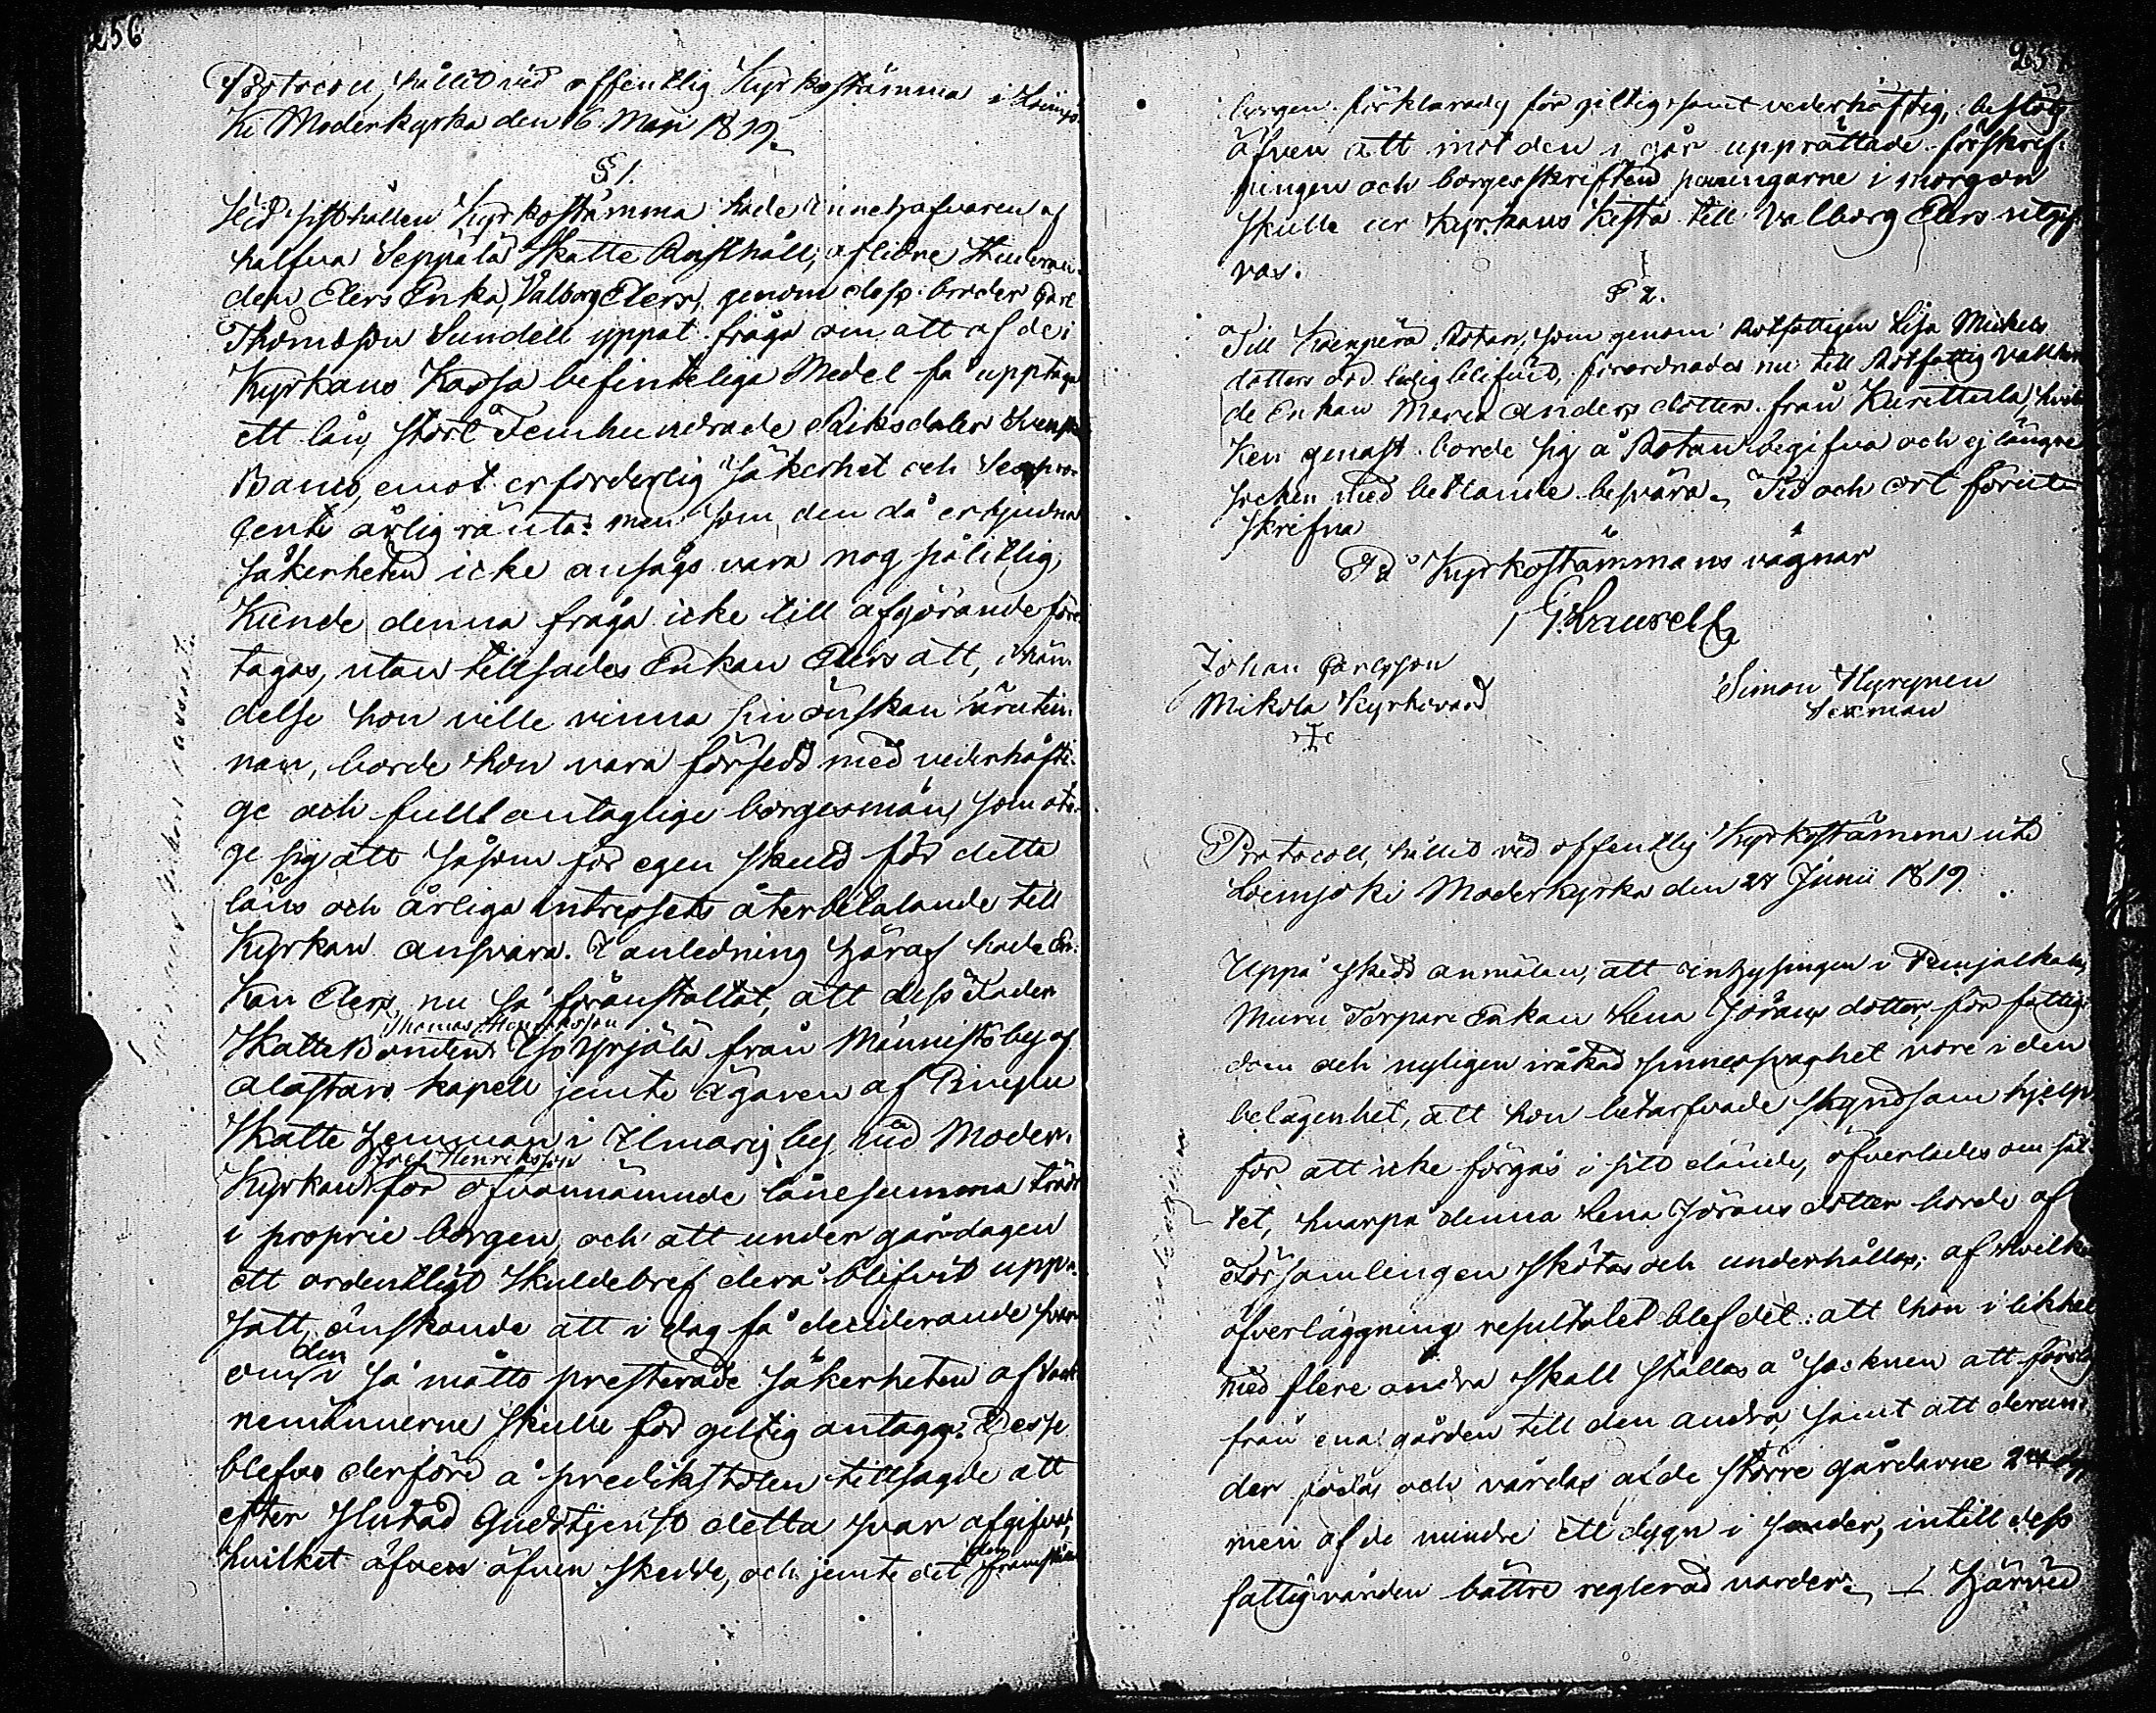 256
Protocoll, hållit vid offentlig Kyrkostämma i Loimjo-
ki Moderkyrka den 16 Maji 1819.
§ 1.
Vid sisthållen Kyrkostämma hade innehafvaren af
halfva Seppälä Skatte Rusthåll, aflidne Studeran-
den Elers Enka, Valborg Elers, genom dess broder Carl
Thomasson Sundell yppat fråga om att af de i
Kyrkans Kassa befinteliga Medel få upptaga
ett lån, stort Femhundrade Riksdaler Svenskt
Banco, emot erforderlig säkerhet och Sex pro-
cents årlig ränta: men som den då erbjudna
säkerheten icke ansågs vara nog pålitlig,
Kunde denna fråga icke till afgörande före-
tagas, utan tillsades Enkan Elers att, i hän-
delse hon ville vinna sin önskan härutin-
nan, borde hon vara försedd med vederhäfti-
ge och fullt antaglige borgesmän, som åto-
ge sig att såsom för egen skuld för detta
låns och årliga intressets återbetalande till
Kyrkan ansvara. I anledning häraf hade En-
kan Elers nu så föranstaltat, att dess Fader
Thomas Henriksson
Skattebonden Yrjälä från Männistö by af
Alastaro kapell jemte ägaren af
Skatte hemman i Ilmaris by vid Moder-
Henriksson
Kyrkan för ofvannämnde lånesumma trädt
i proprie borgen, och att under gårdagen
ett ordentligt Skuldebref derå blifvit uppr-
satt, önskande att i dag få deciderande svar
den
om i så måtto presterade säkerheten af Sock-
nemännerne skulle för giltig antagas: Desse
blefvo derföre å predikstolen tillsagde att
efter slutad Gudstjenst detta svar afgifva,
hvilket äfven äfven skedde, och jemte det den
257
borgen förklarades för giltig samt vederhäftig, beslöts
äfven att mot den i går upprättade förskrif-
ningen och borgesskriften penningarne i morgon
skulle ur Kyrkans Kista till Valborg Elers utgif-
vas.
§ 2.
Till Rotan, som genom Rotfattigen Lisa Michels
dotters död ledig blifvit, förordnades nu till Rotfattig
de Enkan Maria Anders dotter från Kurittula, hvil-
ken genast borde sig å Rotan begifva och ej längre
socknen med bettlande besvära. Tid och ort förut-
skrifna
På Kyrkostämmans vägnar
G. Laurell
Johan Carlsson
Mikola Kyrkovärd
Simon Hyrynen
Sexman
Protocoll, hållit vid offentlig Kyrkostämma uti
Loimjoki Moderkyrka den 28 Junii 1819.
Uppå skedd anmälan, att inhysingen i
Torpare Enkan Lena Jörans dotter för fattig-
dom och nyligen iråkad sinnessvaghet vore i den
belägenhet, att hon betarfvade skyndsam hjelp,
för att icke förgås i sitt elände, öfverlades om sät-
tet, huru denna Lena Jörans dotter borde af
Församlingen skötas och underhållas; af hvilken
öfverläggning resultatet blef det: att hon i likhet
med flere andra skall ställas å Socknen att
från ena gården till den andra, samt att derun-
der födas och vårdas af de större gårdarne 2
men af de mindre ett dygn i sender, intill dess
fattigvården bättre reglerad varder. Härvid